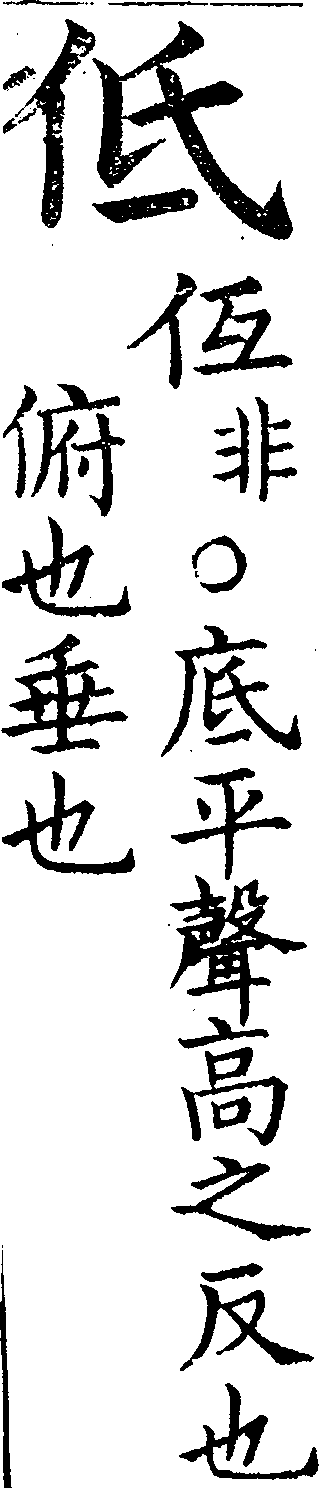 低
仾非○底平聲高之反也
俯也垂也